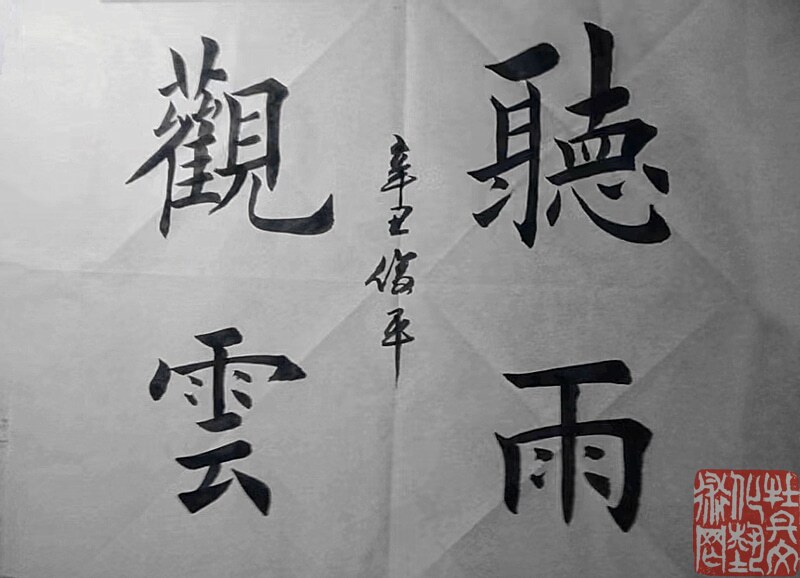 聽雨
辛丑俊平
觀雲